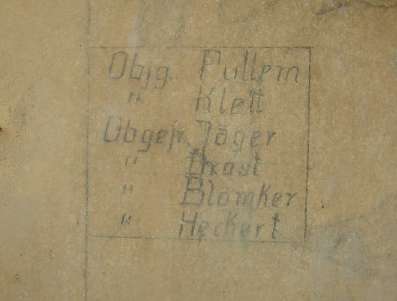 Objg. Pullem
" Klett
Obgefr. Jäger
"
" Blömker
" Heckert